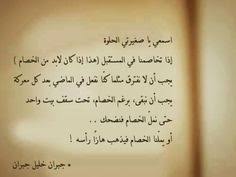 اسمعي يا صغيرتي الحلوة
إذا تخاصمنا في المستقبل (هذا إذا كان لابد من الخصام )
يجب أن لا نفترق مثلما كنّا نفعل في الماضي بعد كل معركة
يجب أن نبقى، برغم الخصام، تحت سقف بيت واحد
حتى نملّ الخصام فنضحك . .
أو يملّنا الخصام فيذهب هازًا رأسه !
* جبران خليل جبران